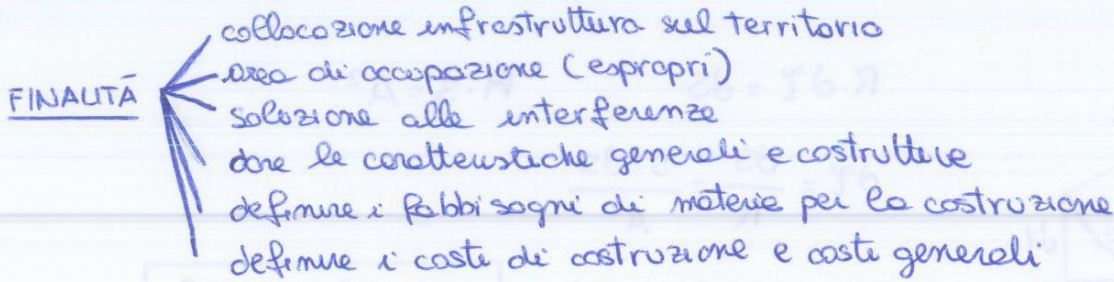 collocazione infrastruttura sul territorio
area di occupazione (espropri)
FINALITÀ
soluzione alle interferenze
dare le caratteristiche generali e costruttive
definire i fabbisogni di materie per la costruzione
definire i costi di costruzione e costi generali